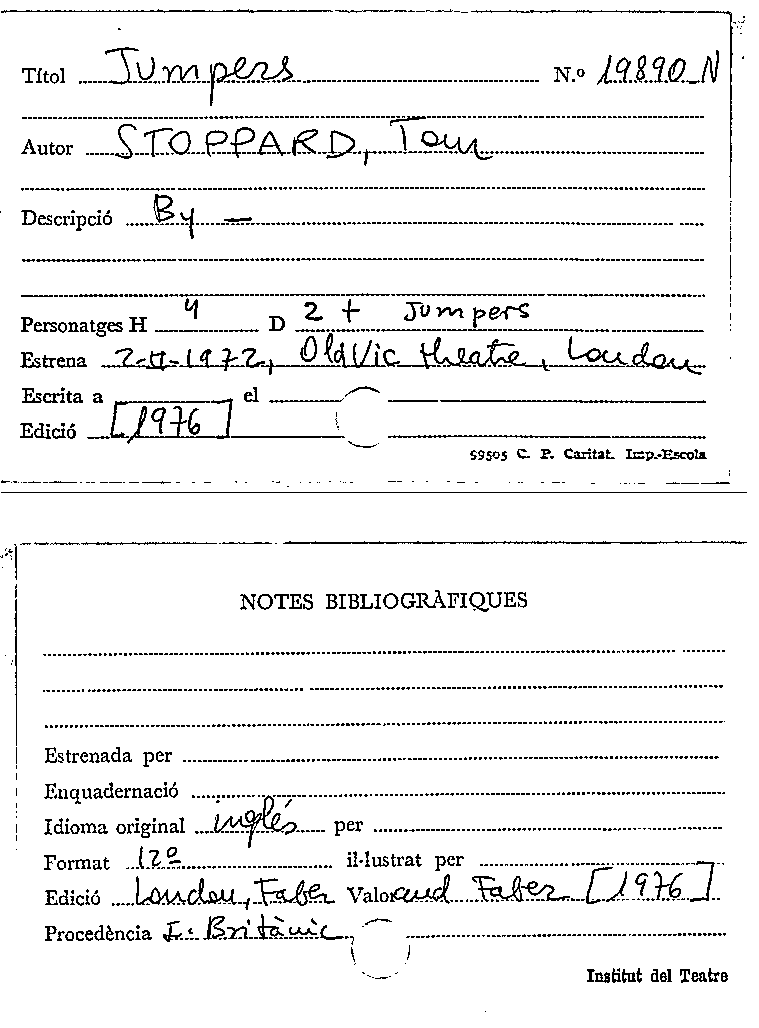 Títol Jumpers N.º 19890_N
Autor STOPPARD, Tom
Descripció By —
Personatges H 4 D 2 + Jumpers
Estrena 2-II-1972, Old Vic theatre, London
Escrita a el
Edició [1976]
59505 C. P. Caritat. Imp.-Escola
NOTES BIBLIOGRÀFIQUES
Estrenada per
Enquadernació
Idioma original inglés per
Format 12º il·lustrat per
Edició London, Faber Valor and Faber [1976]
Procedència I. Britànic
Institut del Teatre